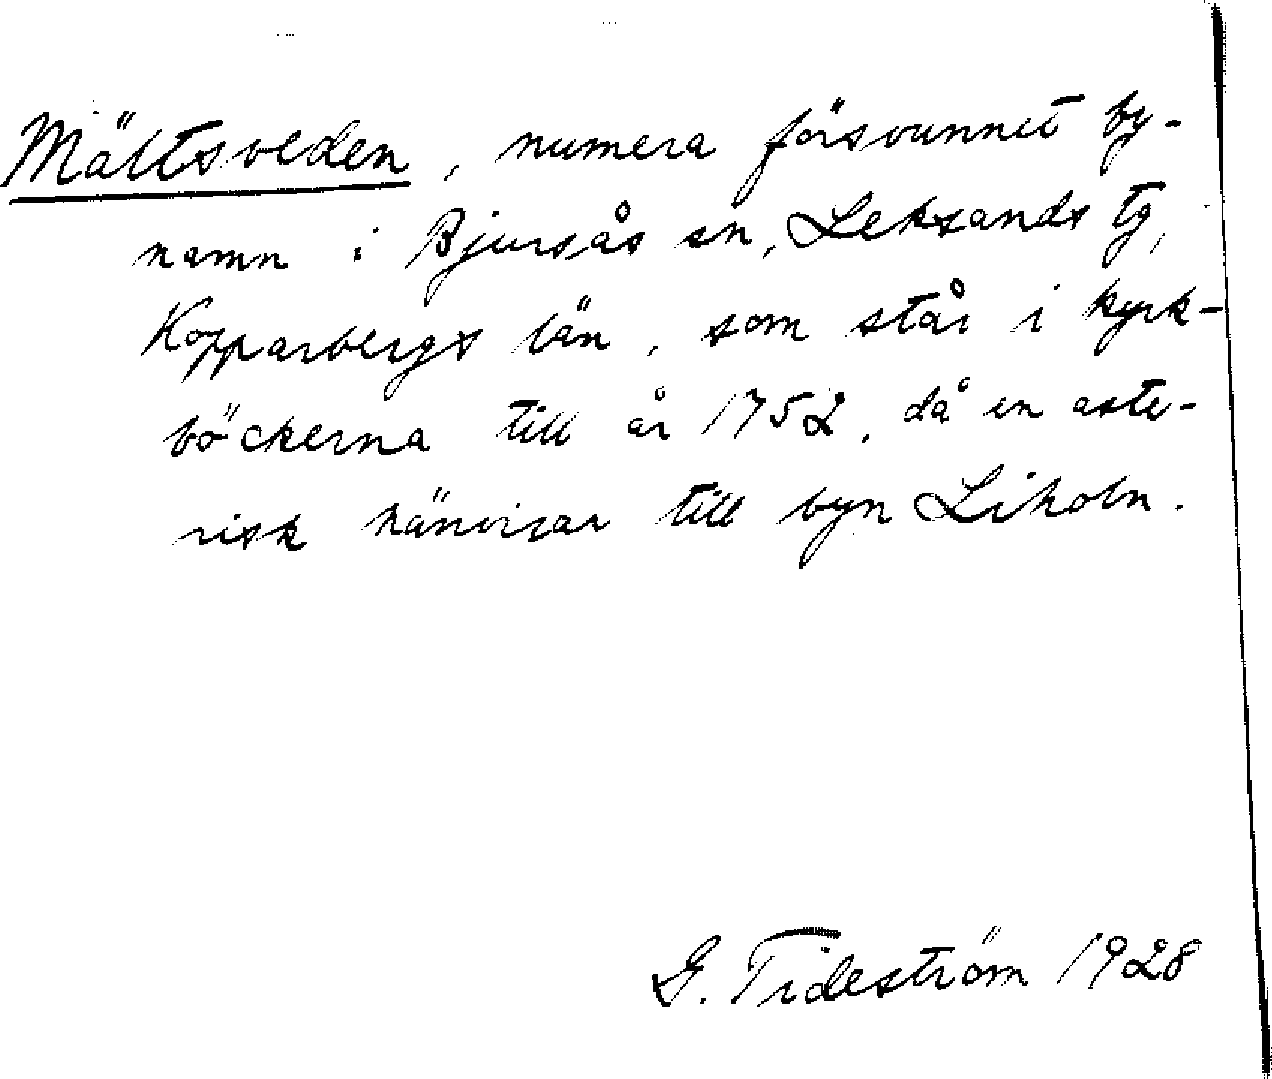 Mältsveden, numera försvunnet by-
namn i Bjursås sn, Leksands tg,
Kopparbergs län, som står i kyrk-
böckerna till år 1752, då en aste-
risk hänvisar till byn Liholn.
G. Tideström 1928